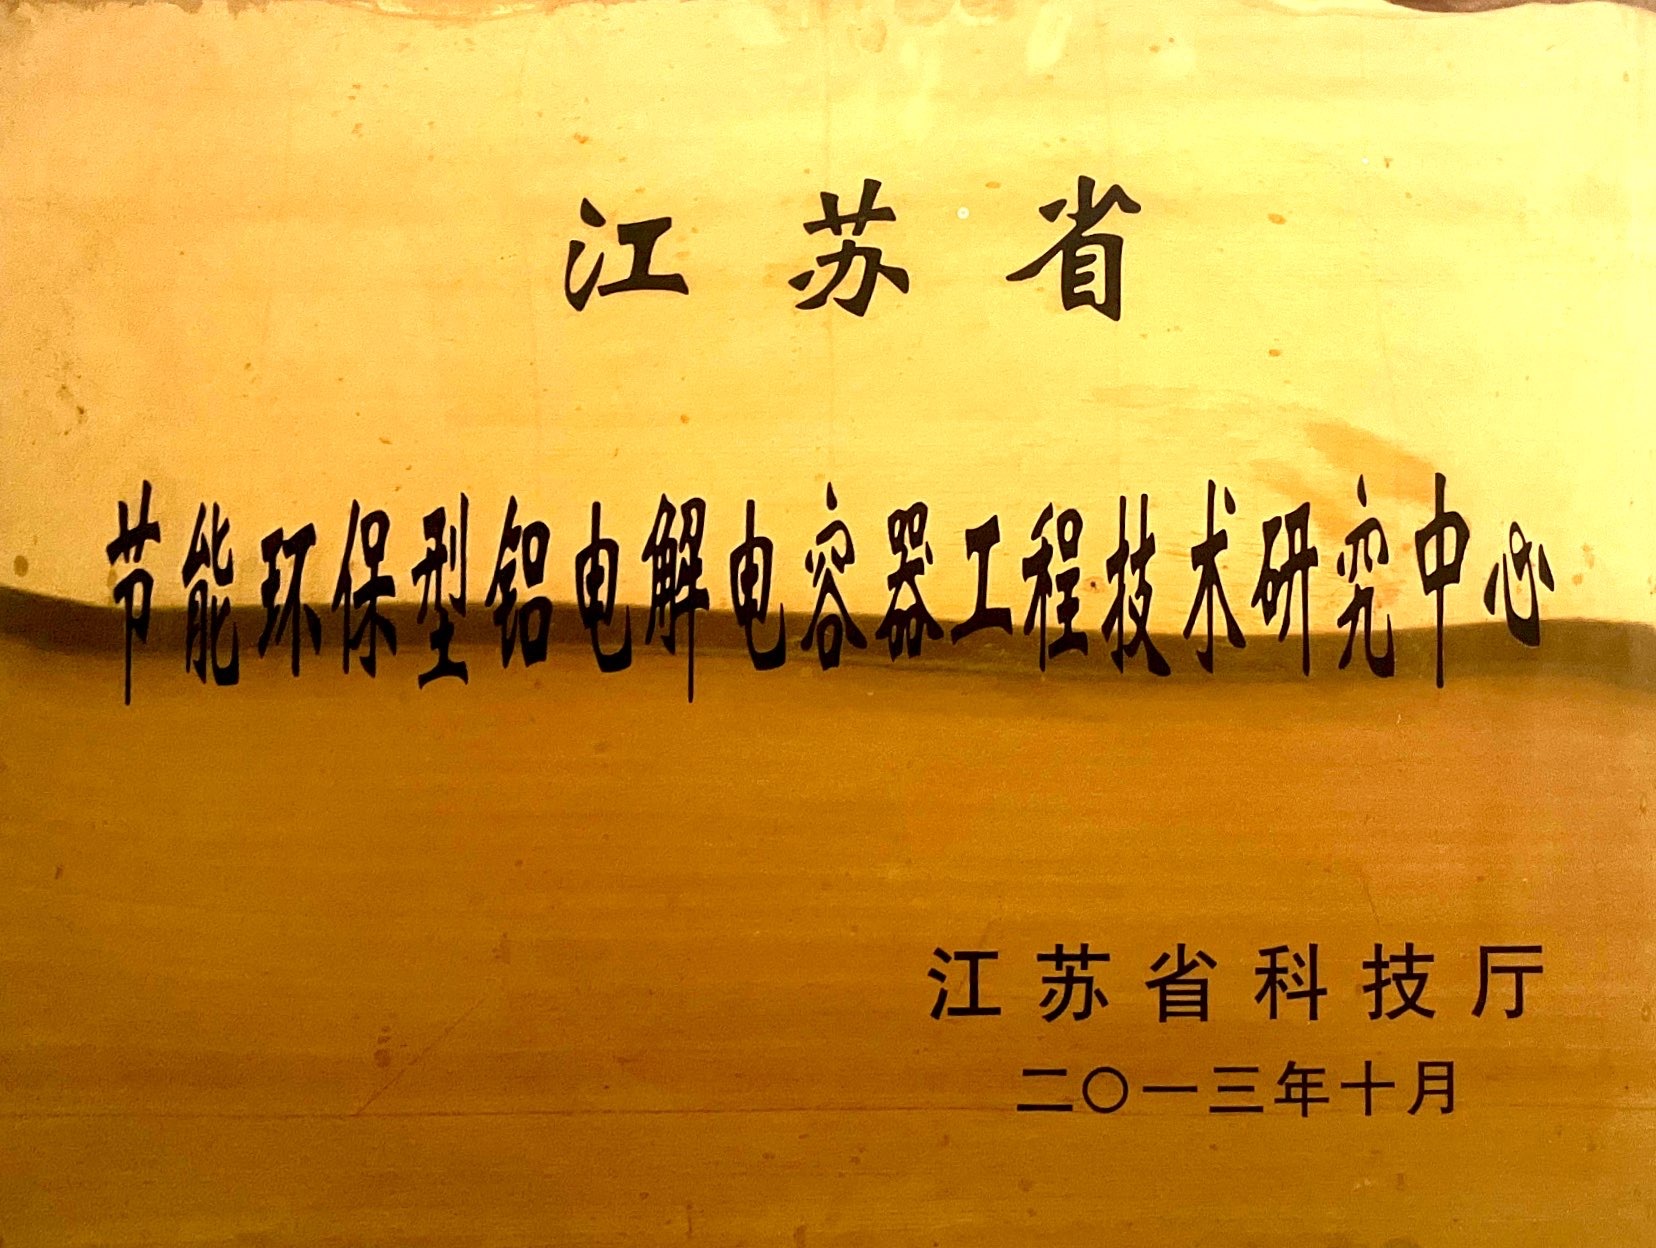 江苏省
节能环保型铝电解电容器工程技术研究中心
江苏省科技厅
二〇一三年十月